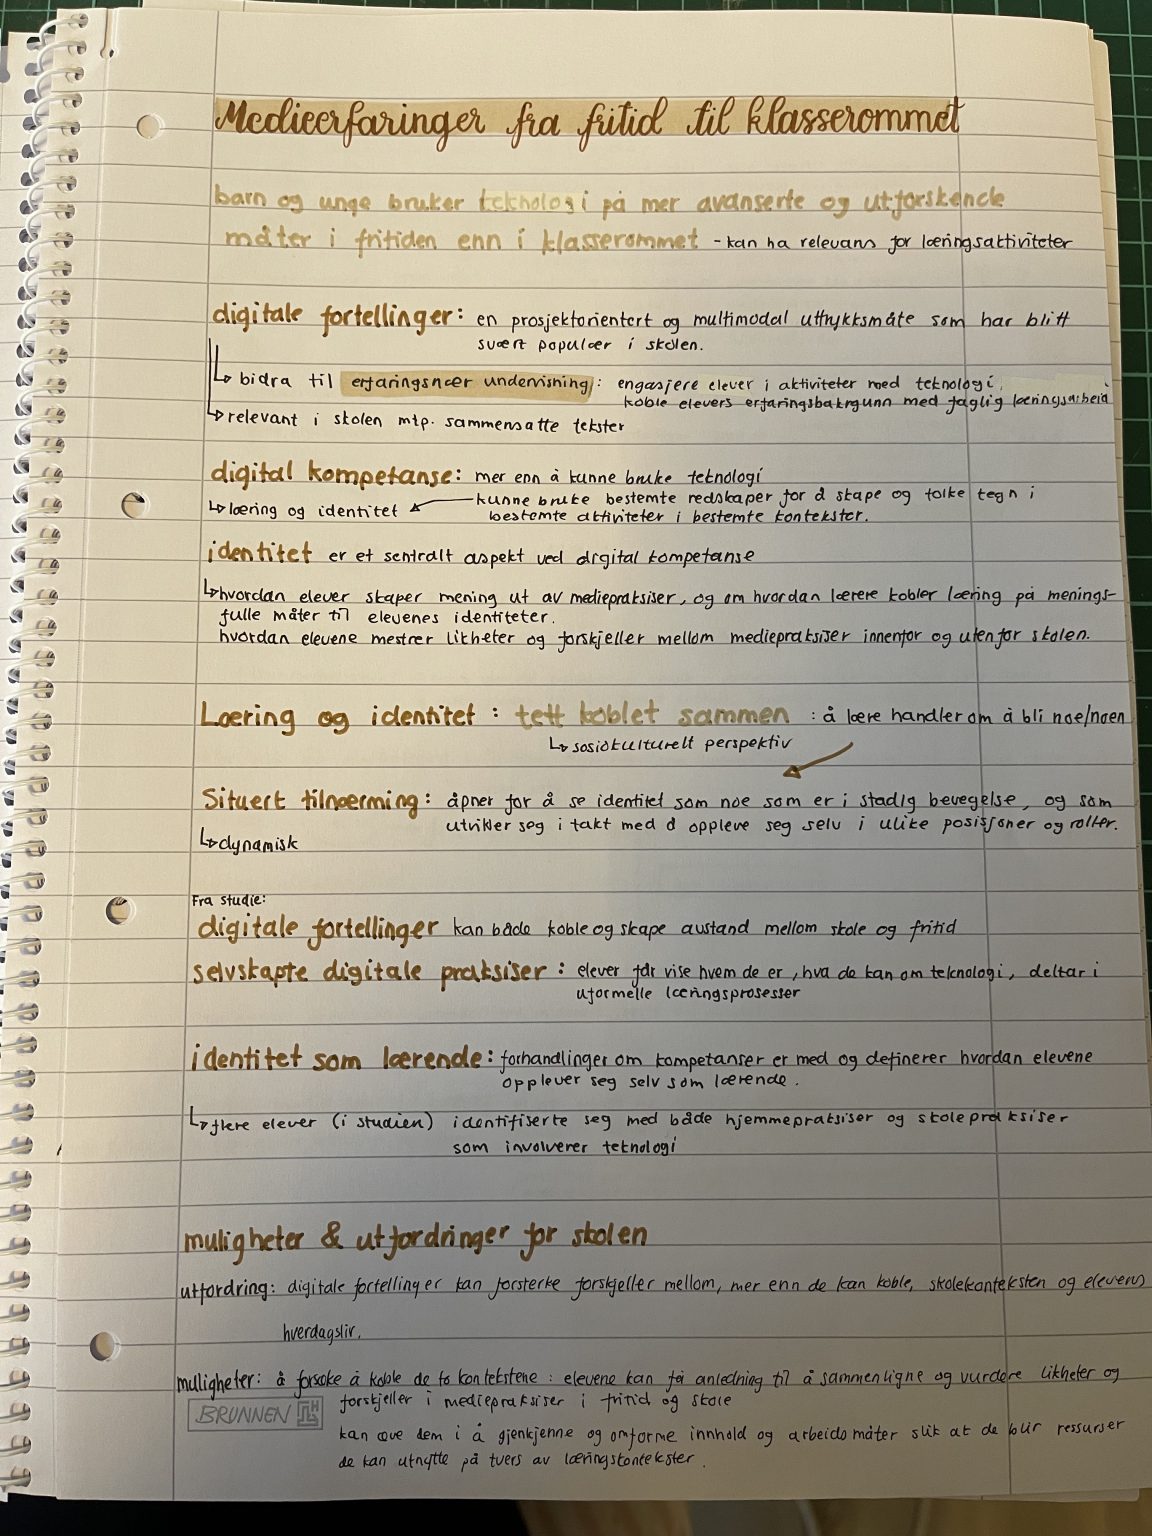 Medieerfaringer fra fritid til klasserommet
barn og unge bruker teknologi på mer avanserte og utforskende
måter i fritiden enn i klasserommet - kan ha relevans for læringsaktiviteter
digitale fortellinger: en prosjektorientert og multimodal uttrykksmåte som har blitt
svært populær i skolen.
↳ bidra til erfaringsnær undervisning: engasjere elever i aktiviteter med teknologi,
koble elevers erfaringsbakrgunn med faglig læringsarbeid
↳ relevant i skolen mtp. sammensatte tekster
digital kompetanse: mer enn å kunne bruke teknologi
kunne bruke bestemte redskaper for å skape og tolke tegn i
↳ læring og identitet ← bestemte aktiviteter i bestemte kontekster.
identitet er et sentralt aspekt ved digital kompetanse
↳ hvordan elever skaper mening ut av mediepraksiser, og om hvordan lærere kobler læring på menings-
fulle måter til elevenes identiteter.
hvordan elevene mestrer likheter og forskjeller mellom mediepraksiser innenfor og utenfor skolen.
Læring og identitet : tett koblet sammen : å lære handler om å bli noe/noen
↳ sosiokulturelt perspektiv
Situert tilnærming: åpner for å se identitet som noe som er i stadig bevegelse, og som
utvikler seg i takt med å oppleve seg selv i ulike posisjoner og roller.
↳ dynamisk
Fra studie:
digitale fortellinger kan både koble og skape avstand mellom skole og fritid
selvskapte digitale praksiser : elever får vise hvem de er, hva de kan om teknologi, deltar i
uformelle læringsprosesser
identitet som lærende: forhandlinger om kompetanser er med og definerer hvordan elevene
opplever seg selv som lærende.
↳ flere elever (i studien) identifiserte seg med både hjemmepraksiser og skolepraksiser
som involverer teknologi
muligheter & utfordringer for skolen
utfordring: digitale fortellinger kan forsterke forskjeller mellom, mer enn de kan koble, skolekonteksten og elevens
hverdagsliv.
muligheter: å forsøke å koble de to kontekstene : elevene kan få anledning til å sammenligne og vurdere likheter og
forskjeller i mediepraksiser i fritid og skole
BRUNNEN
kan øve dem i å gjenkjenne og omforme innhold og arbeidsmåter slik at de blir ressurser
de kan utnytte på tvers av læringskontekster.